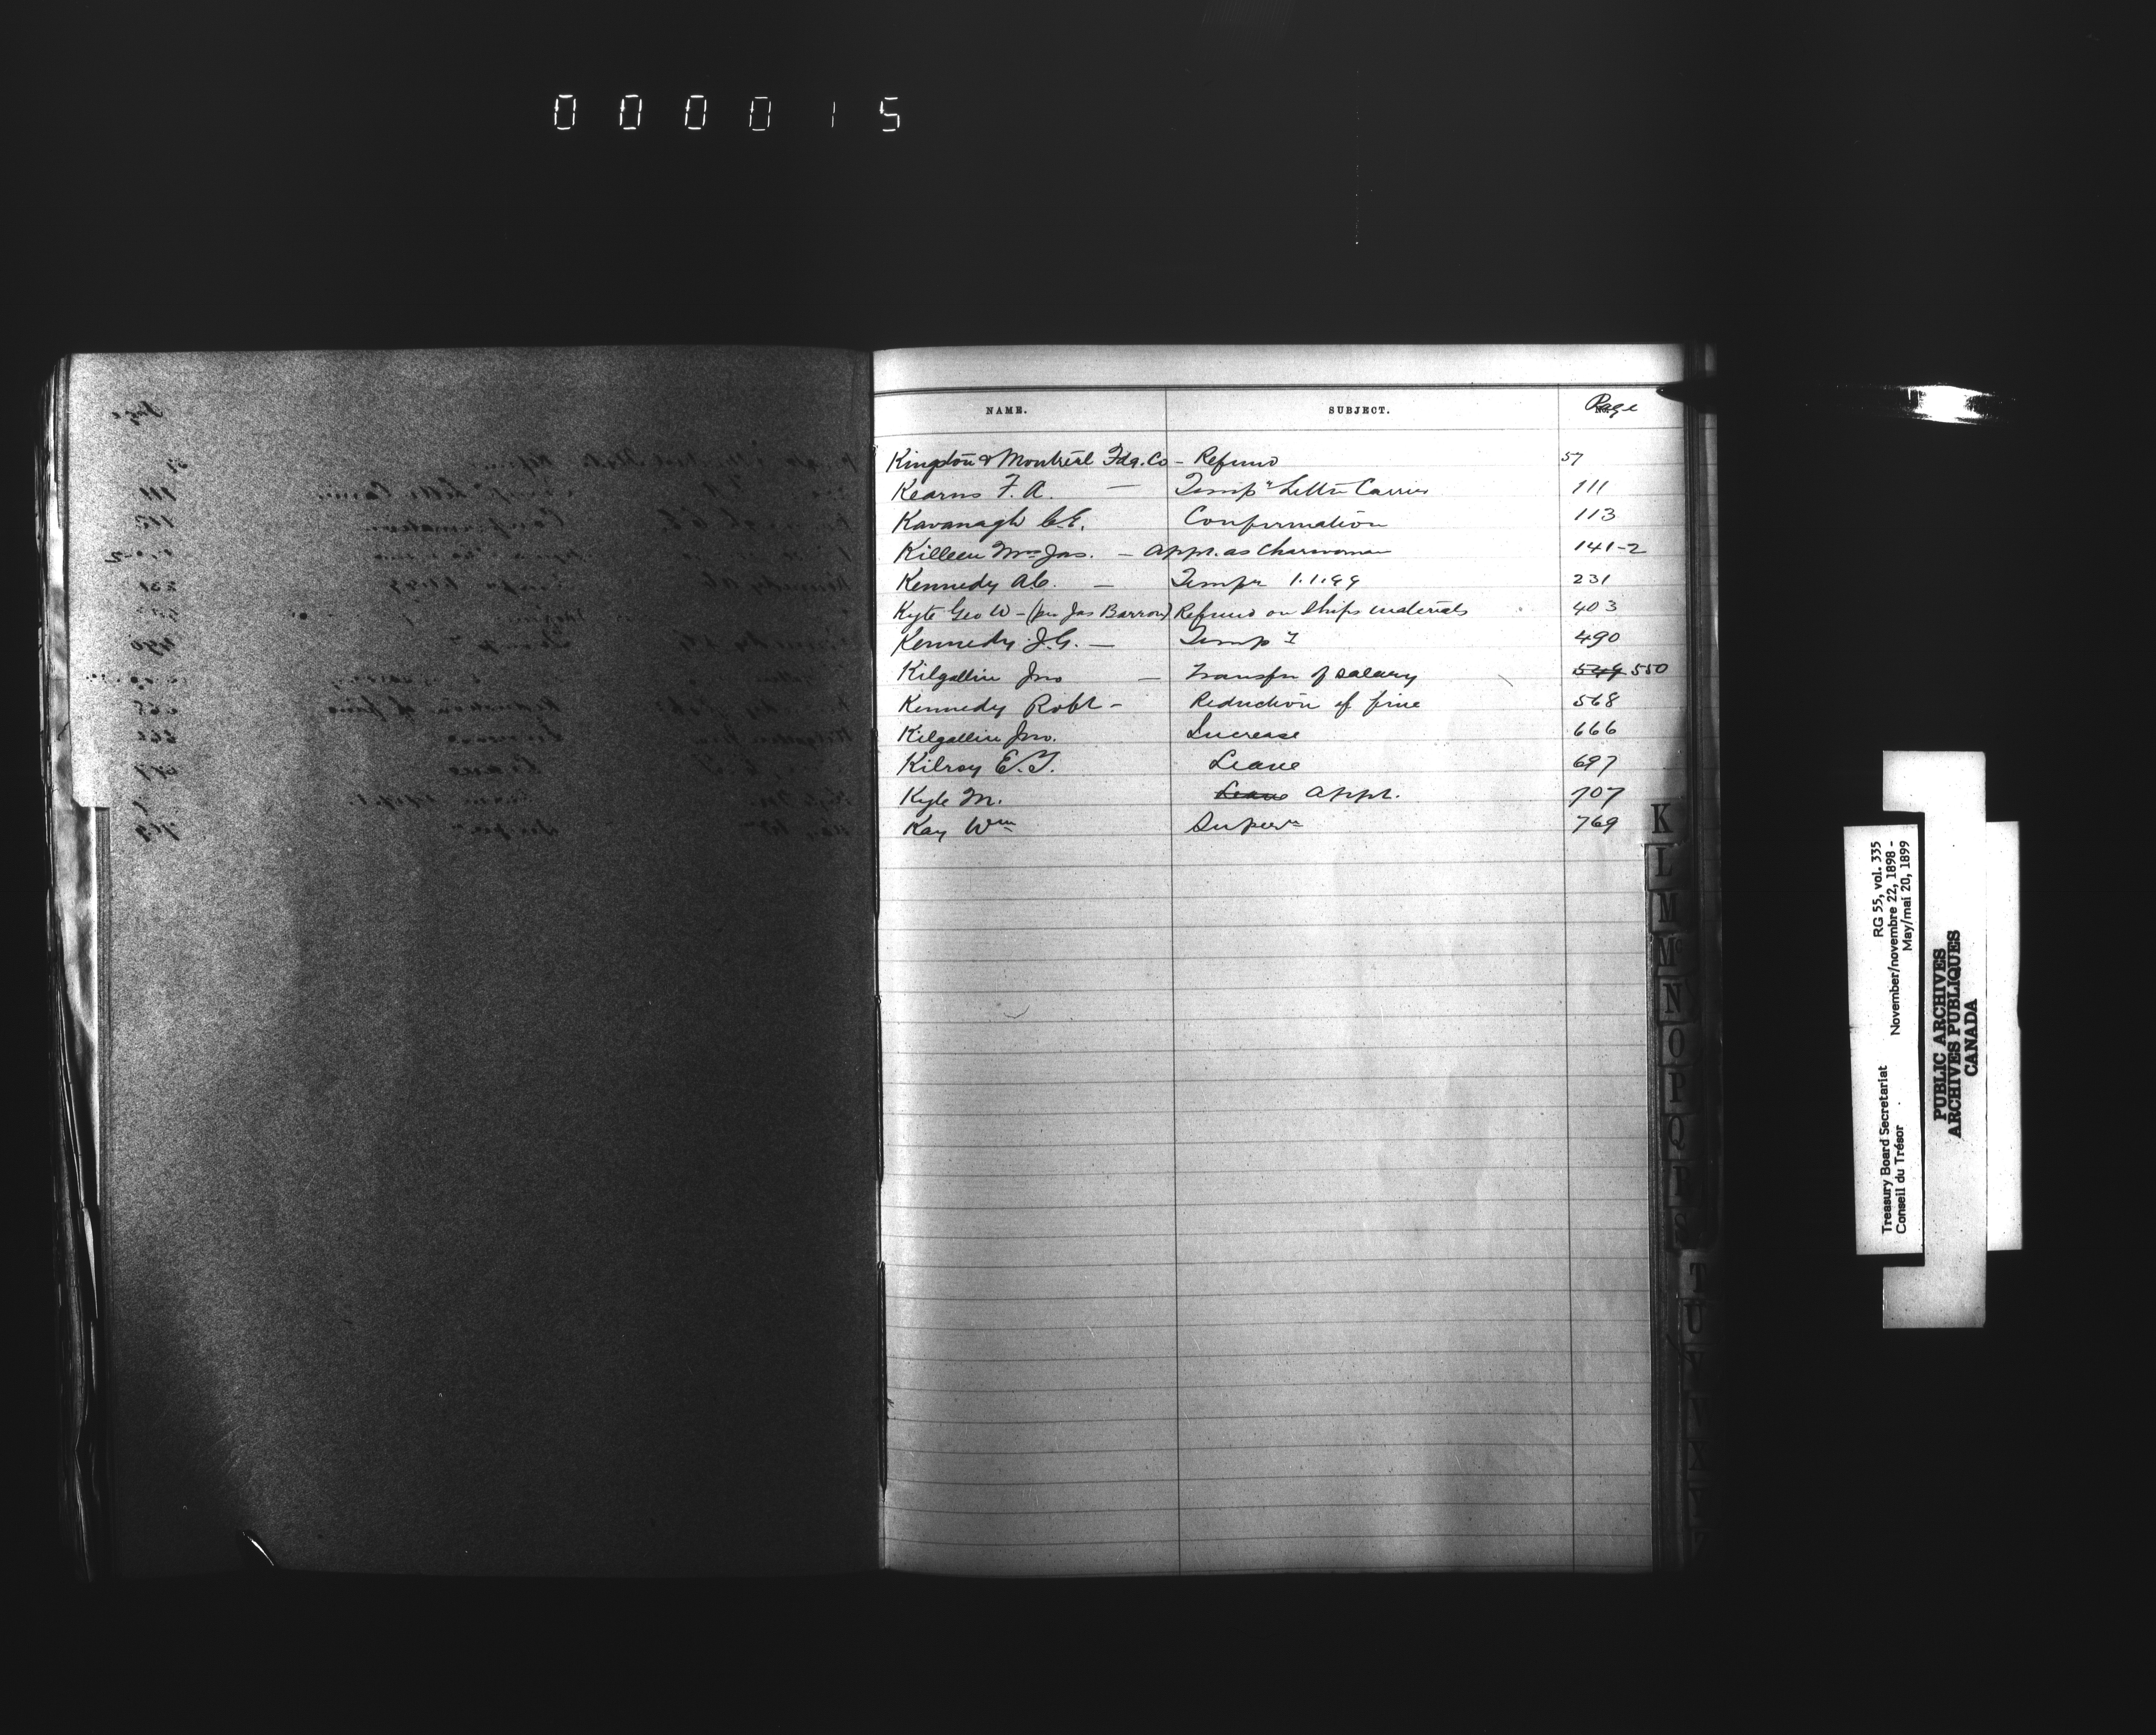 000015
NAME. SUBJECT. Page
Kingston & Montreal Fdg. Co - Refund 57
Kearns F. A. — Tempy Letter Carrier 111
Kavanagh C. E. Confirmation 113
Killeen Mrs Jas. - Appt. as Charwoman 141-2
Kennedy A. C. — Tempy 1.1.99 231
Kyte Geo W - (per Jas Barron) Refund on Ships materials 403
Kennedy J. G. — Tempy 490
Kilgallin Jno — Transfer of salary 549 550
Kennedy Robt - Reduction of fine 568
Kilgallin Jno. Increase 666
Kilroy E. T. Leave 697
Kyle M. Leave Appt. 707
Kay Wm Supern 769
K
L
M
Mc
N
O
P
Q
R
S
T
U
V
Treasury Board Secretariat RG 55, vol. 335
Conseil du Trésor November/novembre 22, 1898 -
May/mai 20, 1899
PUBLIC ARCHIVES
ARCHIVES PUBLIQUES
CANADA